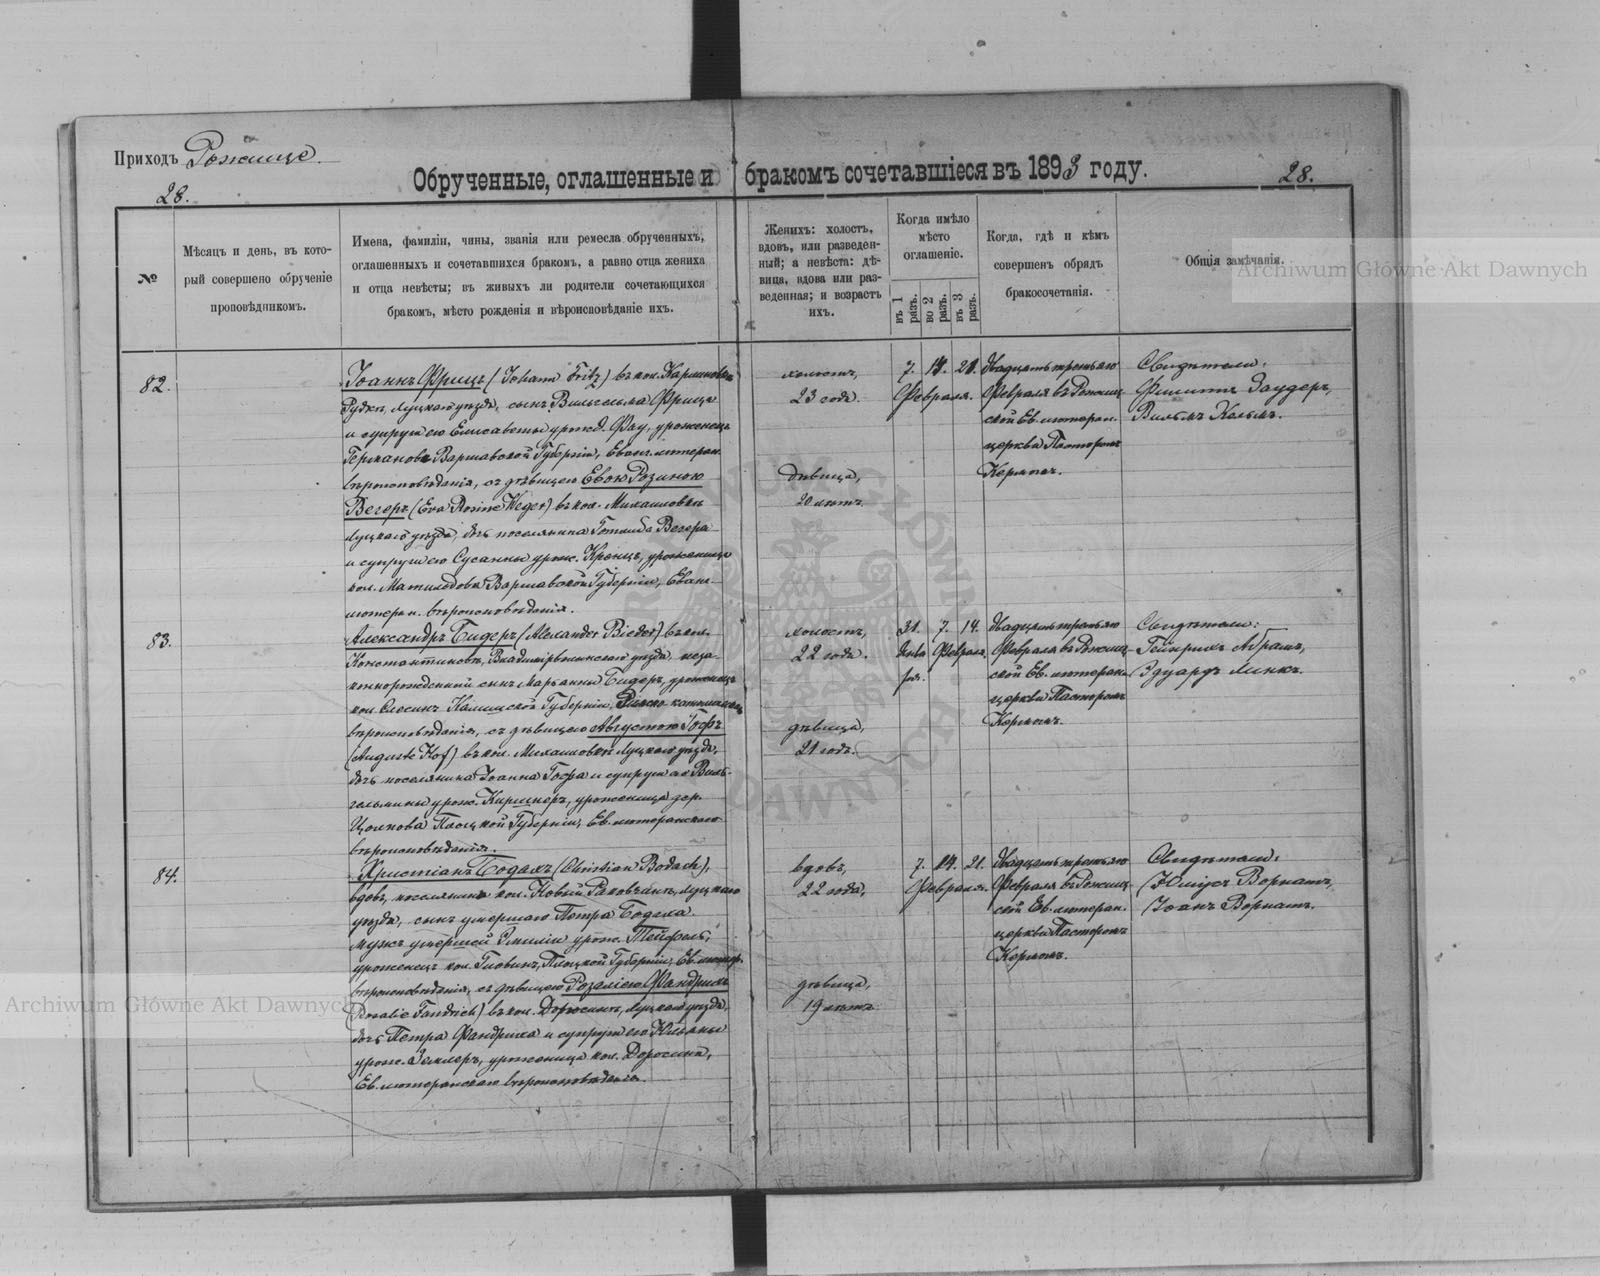 Приходъ Рожище.
28.
Обрученные, оглашенные и бракомъ сочетавшіеся въ 1893 году.
28.
№
Мѣсяцъ и день, въ кото-
рый совершено обрученіе
проповѣдникомъ.
Имена, фамиліи, чины, званія или ремесла обрученныхъ,
оглашенныхъ и сочетавшихся бракомъ, а равно отца жениха
и отца невѣсты; въ живыхъ ли родители сочетающихся
бракомъ, мѣсто рожденія и вѣроисповѣданіе ихъ.
Женихъ: холостъ,
вдовъ, или разведен-
ный; а невѣста: дѣ-
вица, вдова или раз-
веденная; и возрастъ
ихъ.
Когда имѣло
мѣсто
оглашеніе.
въ 1 разъ.
во 2 разъ.
въ 3 разъ.
Когда, гдѣ и кѣмъ
совершенъ обрядъ
бракосочетанія.
Общія замѣчанія.
Archiwum Główne Akt Dawnych
82.
Іоаннъ Фрицъ (Johann Fritz) въ кол.
Луцкаго уѣзда, сынъ Вильгельма Фрица
и супруги его Елисаветы урожд. Фау, уроженецъ
Варшавской Губерніи, Еванг. лютеран.
вѣроисповѣданія, съ дѣвицею Евою Розиною
Вегеръ (Eva Rosine Weger) въ кол. Михаиловкѣ
Луцкаго уѣзда, дочь поселянина Готлиба Вегера
и супруги его Сусанны урож. Кренцъ, уроженица
кол. Матильдовъ Варшавской Губерніи, Еванг.
лютеран. вѣроисповѣданія.
холостъ,
23 года.
дѣвица,
20 лѣтъ.
7. 14. 21.
Февраля.
Двадцать третьяго
Февраля въ Рожищ-
ской Ев. лютеран.
церкви Пасторомъ
Кермомъ.
Свидѣтели:
Филиппъ Даудеръ,
Вильмъ Кельмъ.
83.
Александръ Бидеръ (Alexander Bieder) въ кол.
Константиновъ, Владимірволынскаго уѣзда, неза-
коннорожденный сынъ Марьянны Бидеръ, уроженецъ
кол. Слесинъ Калишской Губерніи,
вѣроисповѣданія, съ дѣвицею Августою Гофъ
(Auguste Hof) въ кол. Михаиловкѣ Луцкаго уѣзда,
дочь поселянина Іоанна Гофа и супруги его Виль-
гельмины урож. Киршнеръ, уроженица дер.
Плоцкой Губерніи, Ев. лютеранскаго
вѣроисповѣданія.
холостъ,
22 года.
дѣвица,
21 годъ.
31. 7. 14.
Янва Февраля.
ря.
Двадцать третьяго
Февраля въ Рожищ-
ской Ев. лютеран.
церкви Пасторомъ
Кермомъ.
Свидѣтели:
Гейнрихъ Абрамъ,
Эдуардъ Линкъ.
84.
Христіанъ Бодахъ (Christian Bodach),
вдовъ, поселянинъ кол. Новый Раковчанъ, Луцкаго
уѣзда, сынъ умершаго Петра Бодаха.
Мужъ умершей Эмиліи урож. Тейфель,
уроженецъ кол. Гловинъ, Плоцкой Губерніи, Ев. лютер.
вѣроисповѣданія, съ дѣвицею Розаліею Фандрихъ
(Rosalie Fandrich) въ кол. Доросинъ, Луцкаго уѣзда,
дочь Петра Фандриха и супруги его Юліаны
урож. Землеръ, уроженица кол. Доросинъ,
Ев. лютеранскаго вѣроисповѣданія.
вдовъ,
22 года,
дѣвица,
19 лѣтъ.
7. 14. 21.
Февраля.
Двадцать третьяго
Февраля въ Рожищ-
ской Ев. лютеран.
церкви Пасторомъ
Кермомъ.
Свидѣтели:
Юліусъ Ворматъ,
Іоанъ Ворматъ.
Archiwum Główne Akt Dawnych